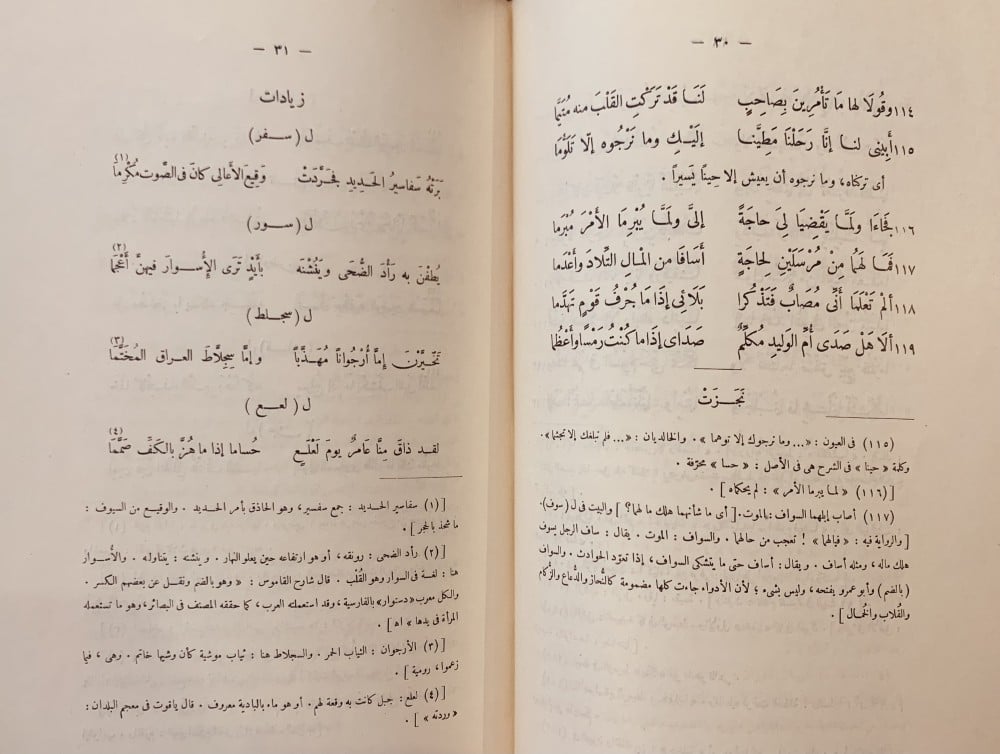 — ٣٠ —
١١٤ وقُولَا لها مَا تَأْمُرِينَ بِصَاحِبٍ لَنَا قَدْ تَرَكْتِ القَلْبَ منه مُتَيَّمَا
١١٥ أَبِينِى لنا إنَّا رَحَلْنَا مَطِيَّنا إلَيْكِ وما نَرْجُوه إلّا تَلَوُّمَا
أى تركناه، وما نرجوه أن يعيش إلا حِينًا يَسيرًا .
١١٦ فجَاءَا ولَمَّا يَقْضِيَا لِىَ حاجَةً إلىَّ ولَمَّا يُبْرِمَا الأَمْرَ مُبْرَمَا
١١٧ فمَا لَهُمَا مِنْ مُرْسَلَيْنِ لِحاجَةٍ أَسَافَا من المالِ التِّلَادَ وأَعْدَما
١١٨ ألمْ تَعْلَمَا أَنِّى مُصَابٌ فَتَذْكُرا بَلَائِى إذَا مَا جُرْفُ قَوْمٍ تَهَدَّمَا
١١٩ ألَا هَلْ صَدَى أُمِّ الوَلِيدِ مُكَلِّمٌ صَدَاى إذَا ما كُنْتُ رَمْسًا وأَعْظُمَا
نَجَزَتْ
(١١٥) فى العيون : «... وما نرجوك إلا توهما» . والخالديان : «... فلم تبلغك إلا تجشما».
وكلمة «حينا» فى الشرح هى فى الأصل : «حسا» محرّفة .
[(١١٦) «لما يبرما الأمر» : لم يحكماه] .
(١١٧) أصاب إبلهما السواف : بالموت . [أى ما شأنهما هلك ما لهما؟] والبيت فى ل (سوف).
[والرواية فيه : «فيالهما» ! تعجب من حالهما . والسواف : الموت . يقال : ساف الرجل يسوف
هلك ماله، ومثله أساف . ويقال : أساف حتى ما يتشكى السواف، إذا تعوّد الحوادث . والسواف
(بالضم) وأبو عمرو يفتحه، وليس بشىء؛ لأن الأدواء جاءت كلها مضمومة كالنُّحاز والدُّعاع والزُّكام
والقُلاب والخُمال] .
— ٣١ —
زيادات
ل (سفر)
بَرَتْهُ سَفاسيرُ الحَديدِ فجَرَّدَتْ وَقِيعَ الأعالِى كانَ فى الصَّوت مُكْرِمَا (١)
ل (سور)
يُطِفْنَ به رَأْدَ الضُّحَى ويَنُشْنَه بأَيْدٍ تَرَى الإسْوارَ فيهنَّ أَعْجَمَا (٢)
ل (سجلط)
تَخَيَّرْنَ إمَّا أُرْجُوانًا مُهَذَّبًا وإمَّا سِجِلَّاطَ العراقِ المُخَتَّمَا (٣)
ل (لعع)
لقد ذاقَ مِنَّا عَامِرٌ يومَ لَعْلَعٍ حُساما إذا ما هُزَّ بالكَفِّ صَمَّمَا (٤)
[(١) سفاسير الحديد : جمع سفسير، وهو الحاذق بأمر الحديد . والوقيع من السيوف :
ما شحذ بالحجر] .
[(٢) رأد الضحى : رونقه، أو هو ارتفاعه حين يعلو النهار . وينشنه : يتناوله . والأسوار
هنا : لغة فى السوار وهو القُلْب . قال شارح القاموس : «وهو بالضم ونقل عن بعضهم الكسر .
والكل معرب «دستوار» بالفارسية، وقد استعملته العرب، كما حققه المصنف فى البصائر، وهو ما تستعمله
المرأة فى يدها» اه] .
[(٣) الأرجوان : الثياب الحمر . والسجلاط هنا : ثياب موشية كأن وشيها خاتم . وهى، فيما
زعموا، رومية] .
[(٤) لعلع : جبل كانت به وقعة لهم . أو هو ماء بالبادية معروف . قال ياقوت فى معجم البلدان :
«وردته»] .